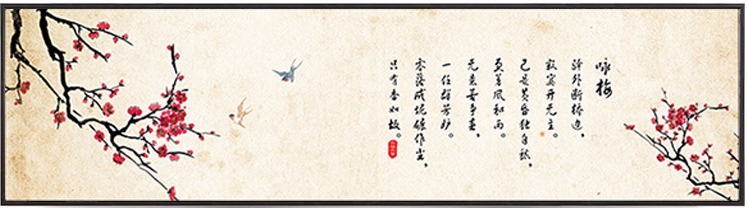 咏梅
驿外断桥边，
寂寞开无主。
已是黄昏独自愁，
更著风和雨。
无意苦争春，
一任群芳妒。
零落成泥碾作尘，
只有香如故。